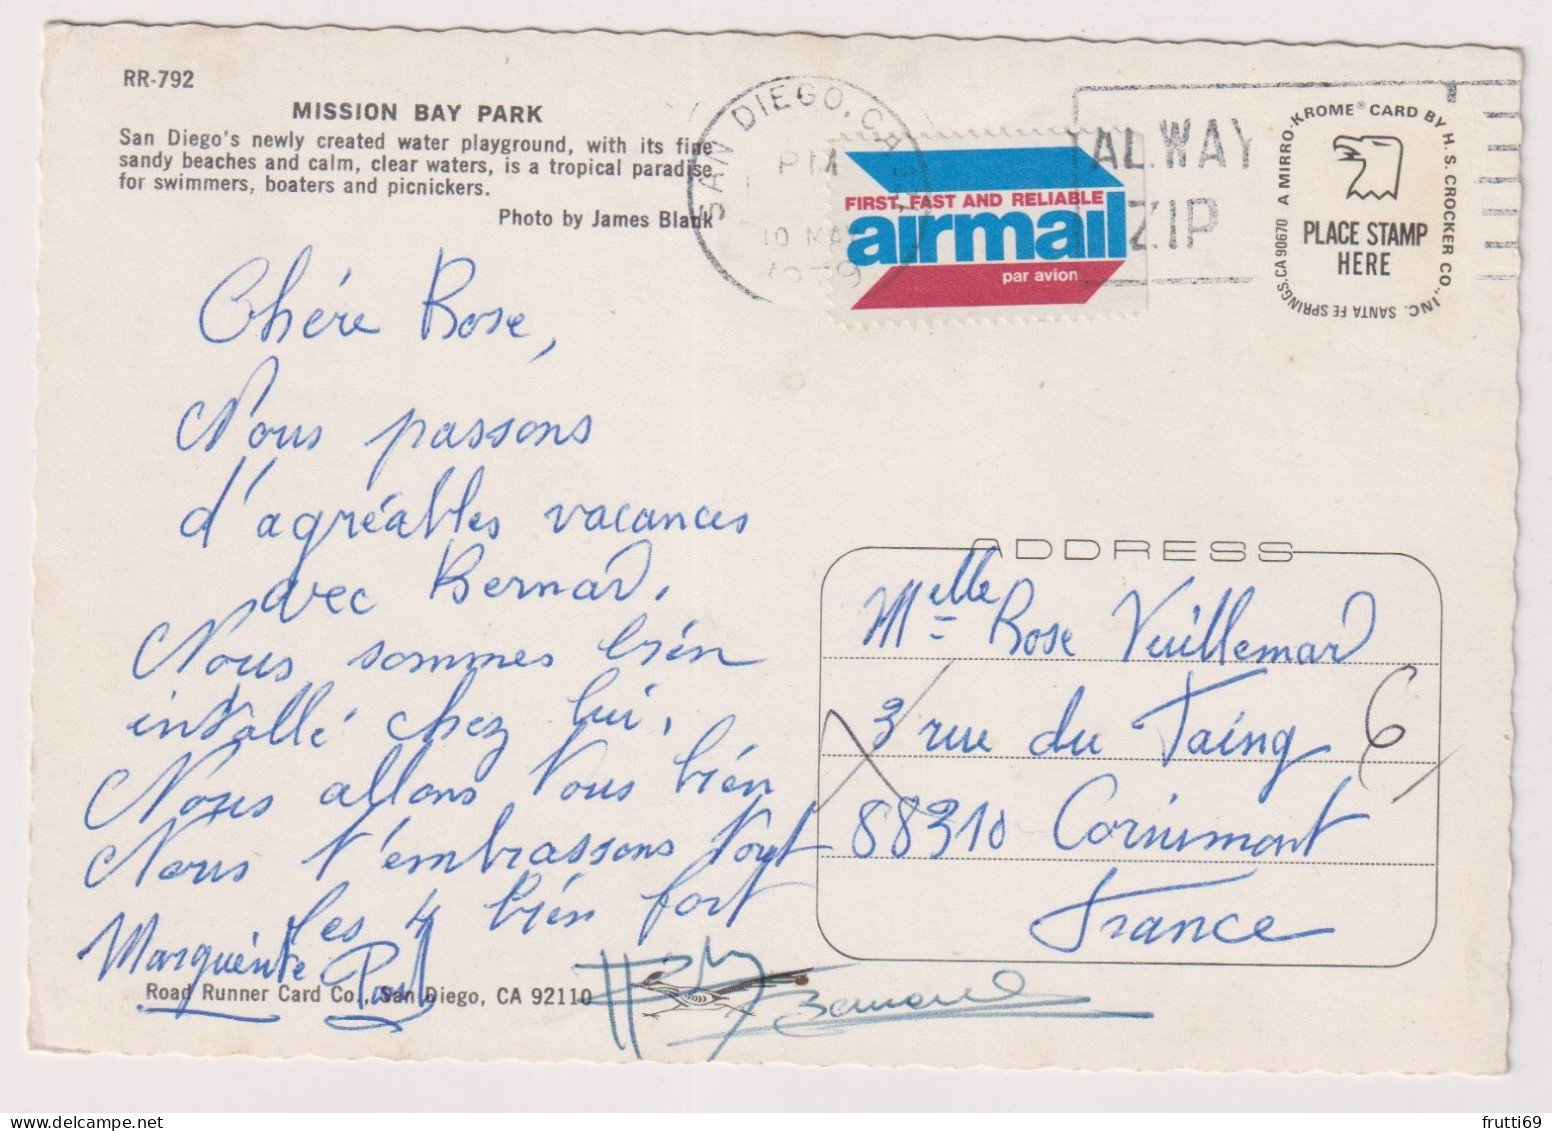 RR-792
MISSION BAY PARK
San Diego's newly created water playground, with its fine
sandy beaches and calm, clear waters, is a tropical paradise
for swimmers, boaters and picnickers.
Photo by James Blank
SAN DIEGO, CA
PM
10 MAY
1979
FIRST, FAST AND RELIABLE
airmail
par avion
ALWAY
ZIP
A MIRRO-KROME® CARD BY H. S. CROCKER CO., INC. SANTA FE SPRINGS, CA 90670
PLACE STAMP
HERE
Chére Rose,
Nous passons
d'agréables vacances
avec Bernard.
Nous sommes bien
installé chez lui.
Nous allons tous bien
Nous t'embrassons tout
les 4 bien fort
Marguerite Paul
Bernard
Road Runner Card Co., San Diego, CA 92110
ADDRESS
Melle Rose Vuillemard
3 rue du Taing 6
88310 Cornimont
France
frutti69